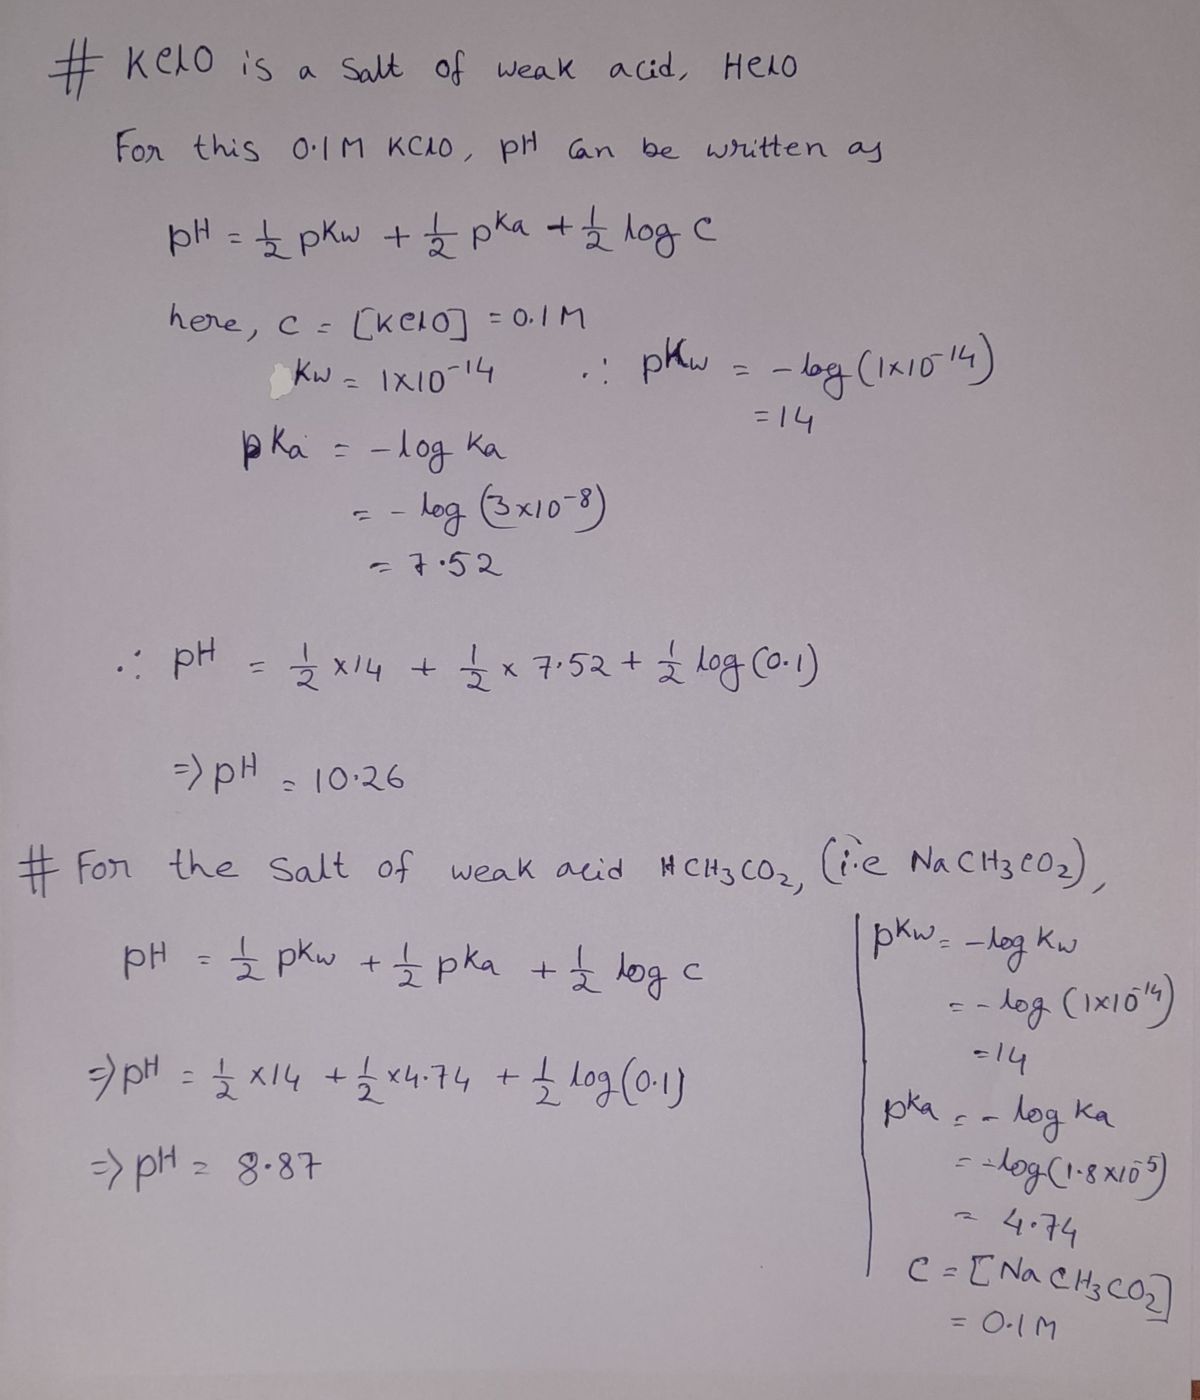 # KClO is a salt of weak acid, HClO
For this 0.1M KClO, pH can be written as
pH = 1/2 pKw + 1/2 pKa + 1/2 log C
here, C = [KClO] = 0.1M
Kw = 1×10⁻¹⁴ ∴ pKw = -log(1×10⁻¹⁴)
= 14
pKa = -log Ka
= -log (3×10⁻⁸)
= 7.52
∴ pH = 1/2 ×14 + 1/2 × 7.52 + 1/2 log(0.1)
=> pH = 10.26
# For the salt of weak acid HCH₃CO₂, (i.e NaCH₃CO₂),
pH = 1/2 pKw + 1/2 pKa + 1/2 log C
=> pH = 1/2 ×14 + 1/2 ×4.74 + 1/2 log(0.1)
=> pH = 8.87
pKw = -log Kw
= -log (1×10⁻¹⁴)
= 14
pKa = -log Ka
= -log(1.8×10⁻⁵)
= 4.74
C = [NaCH₃CO₂]
= 0.1M